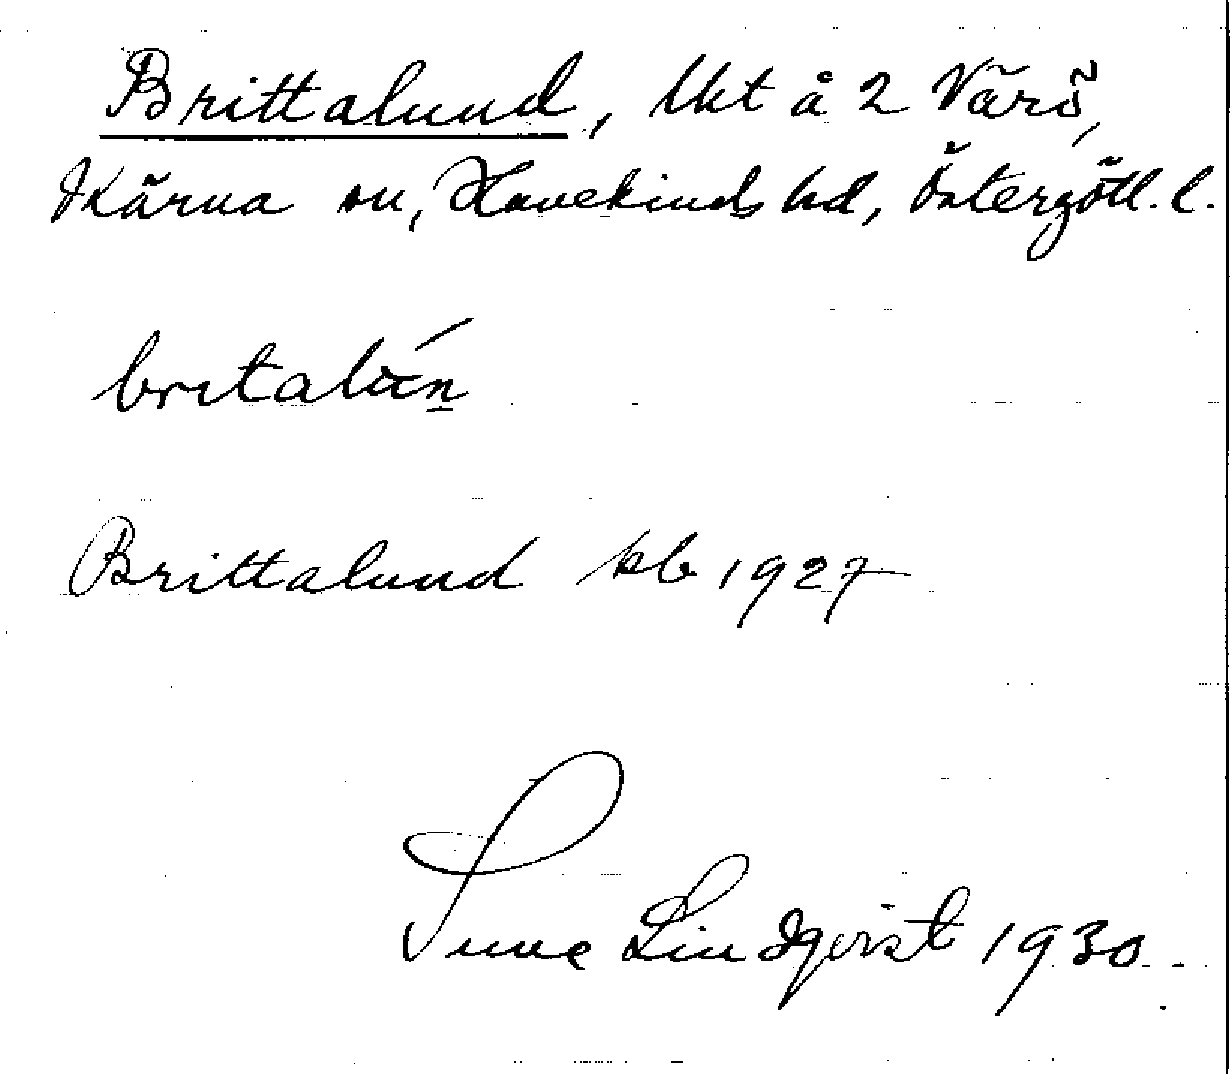 Brittalund, lht å 2 Värö,
Kärna sn, Hanekinds hd, Östergötl. l.
britalún̲
Brittalund kb 1927
Sune Lindqvist 1930